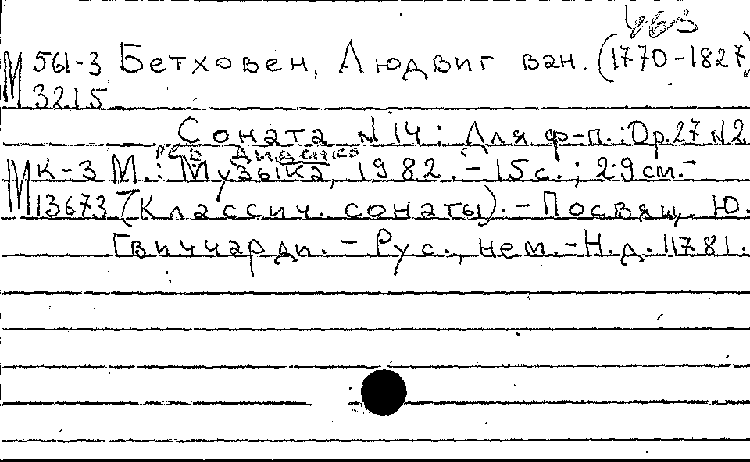 463
М 561-3 Бетховен, Людвиг ван. (1770-1827)
3215
Соната N 14: Для ф-п.: Op. 27 N 2
МК-3 М.: Музыка, 1982. - 15 с.; 29 см. -
13673 (Классич. сонаты). - Посвящ. Ю.
Гвиччарди. - Рус., нем. - Н.д. 11781.